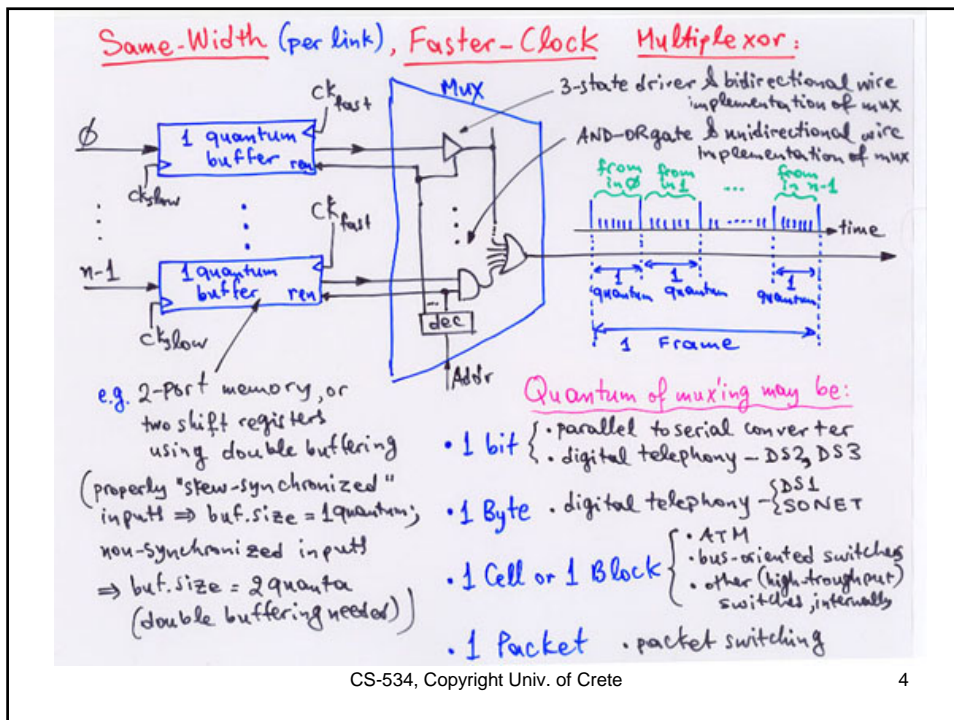 Same-Width (per link), Faster-Clock Multiplexor:
ckfast
Mux
3-state driver & bidirectional wire
implementation of mux
AND-OR gate & unidirectional wire
implementation of mux
Ø
1 quantum
buffer
ren
ckslow
ckfast
from
in Ø
from
in 1
...
from
in n-1
time
n-1
1 quantum
buffer
ren
ckslow
1
quantum
1
quantum
1
quantum
1 Frame
dec
Addr
e.g. 2-port memory, or
two shift registers
using double buffering
(properly "skew-synchronized"
inputs ⇒ buf.size = 1 quantum;
non-synchronized inputs
⇒ buf.size = 2 quanta
(double buffering needed))
Quantum of mux'ing may be:
• 1 bit { • parallel to serial converter
• digital telephony – DS2, DS3
• 1 Byte • digital telephony – { DS1
SONET
• 1 Cell or 1 Block { • ATM
• bus-oriented switches
• other (high-troughput)
switches, internally
• 1 Packet • packet switching
CS-534, Copyright Univ. of Crete 4